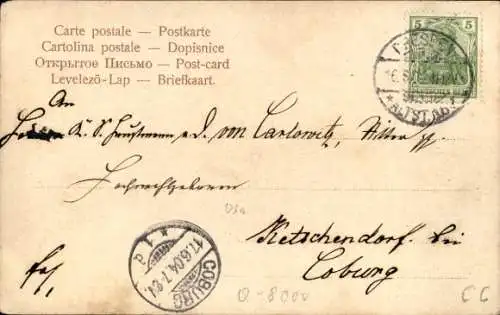 Carte postale — Postkarte
Cartolina postale — Dopisnice
Открытое Письмо — Post-card
Levelező-Lap — Briefkaart.
5 5
DRESDEN
*ALTST.
An
K. S. Hauptmann a. D. von Carlowitz, Ritter pp.
Hochwohlgeboren
Ketschendorf bei
Coburg
COBURG
17.6.04.7-8V.
* 1 d
frei.
Q-8000
CC